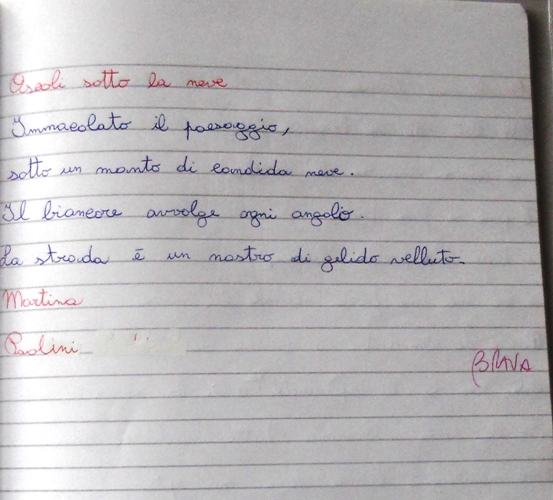 Ascoli sotto la neve
Immacolato il paesaggio,
sotto un manto di candida neve.
Il biancore avvolge ogni angolo.
La strada è un nastro di gelido velluto.
Martina
Paolini
BRAVA